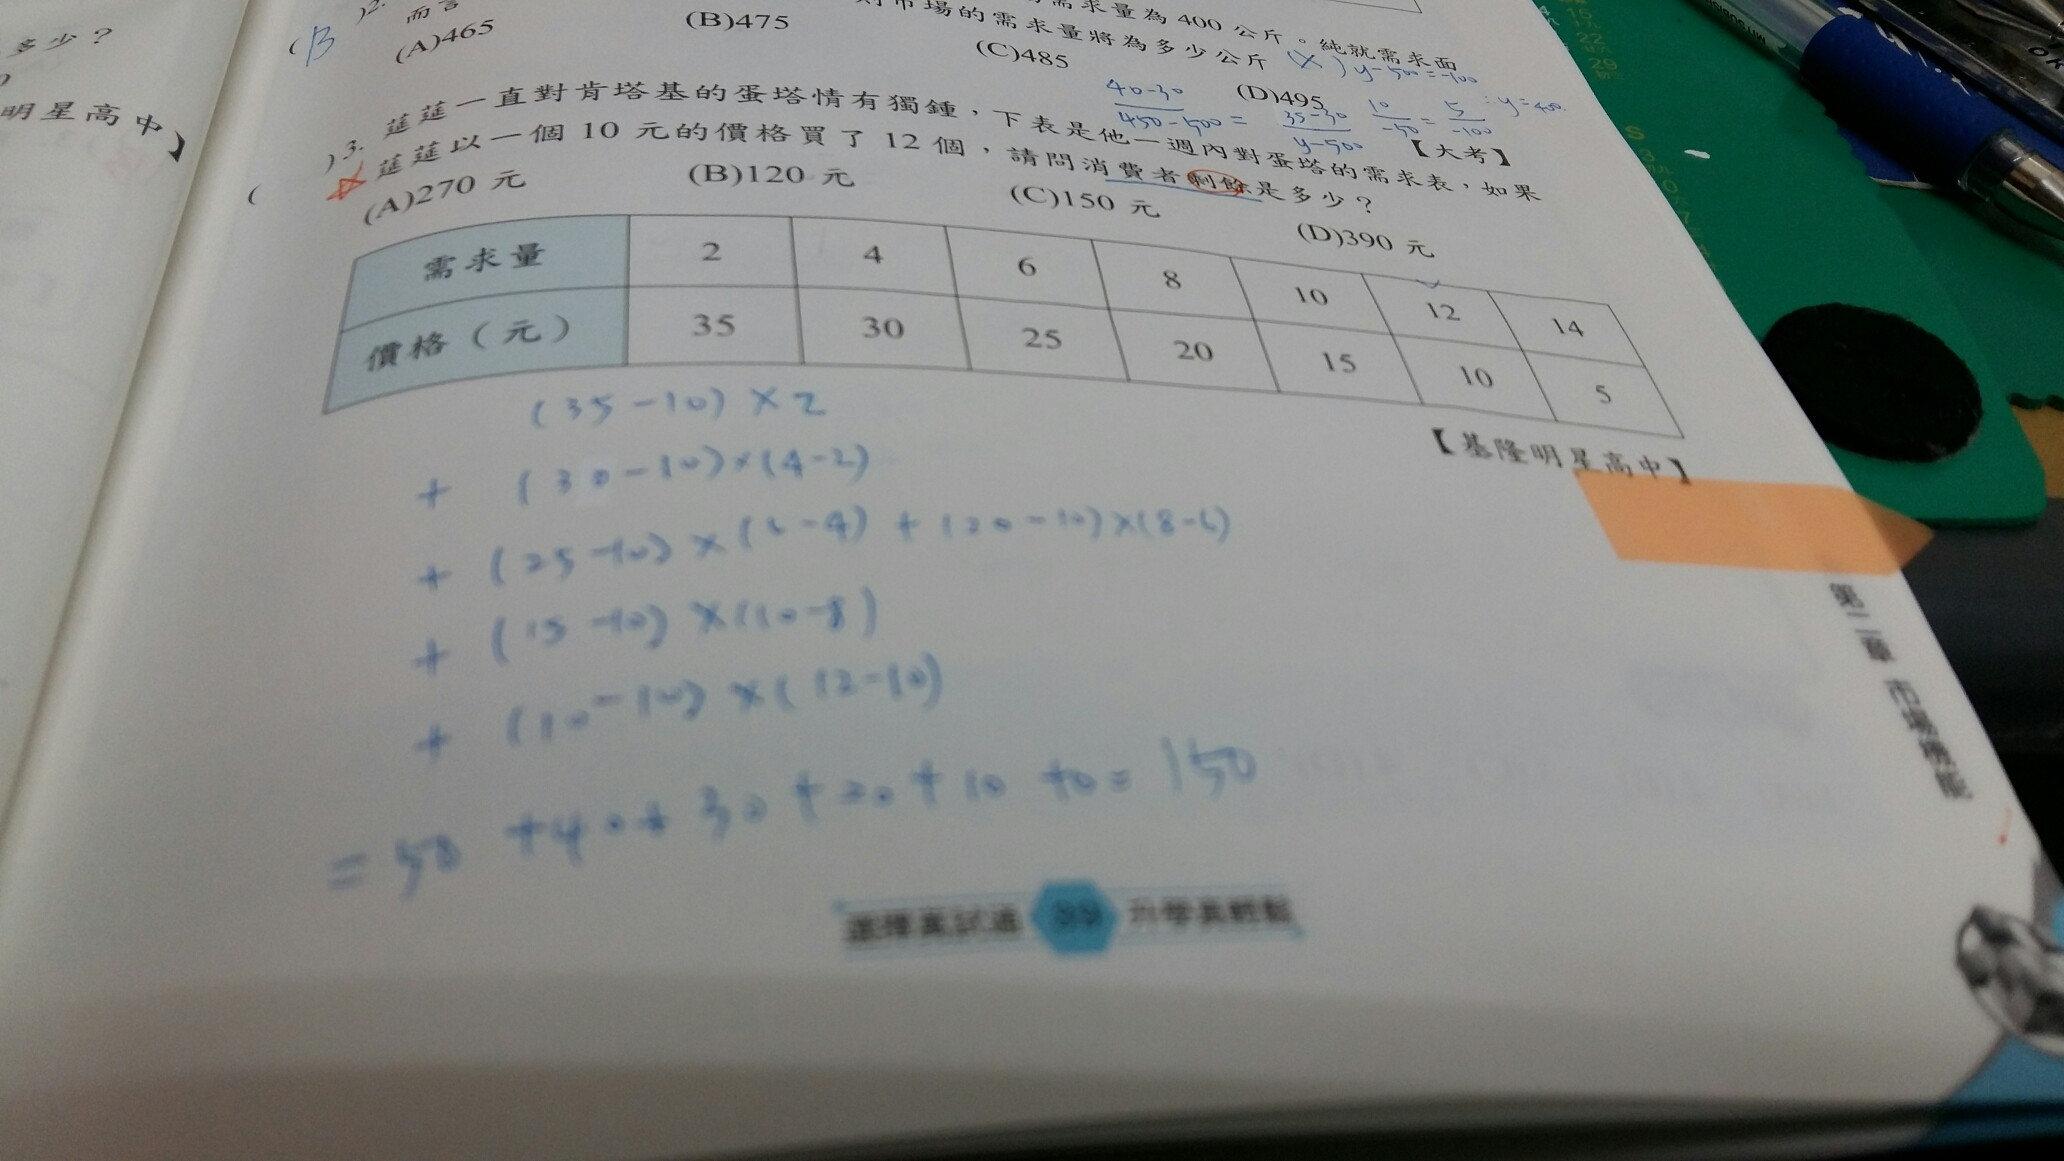 多少？
明星高中】
)2.
而言
需求量為 400 公斤。純就需求面
(B
則市場的需求量將為多少公斤
(A)465
(B)475
(C)485
(D)495
(X) y-500=-100
40-30
450-500 =
35-30
y-500
10
-50
=
5
-100
∴y=400
【大考】
( )3. 莛莛一直對肯塔基的蛋塔情有獨鍾，下表是他一週內對蛋塔的需求表，如果
莛莛以一個 10 元的價格買了 12 個，請問消費者剩餘是多少？
(A)270 元
(B)120 元
(C)150 元
(D)390 元
需求量 2 4 6 8 10 12 14
價格（元） 35 30 25 20 15 10 5
【基隆明星高中】
(35-10)×2
+ (30-10)×(4-2)
+ (25-10)×(6-4) + (20-10)×(8-6)
+ (15-10)×(10-8)
+ (10-10)×(12-10)
= 50 +40+ 30 +20+ 10 +0= 150
第二章 市場機能
選擇真試過 39 升學真輕鬆